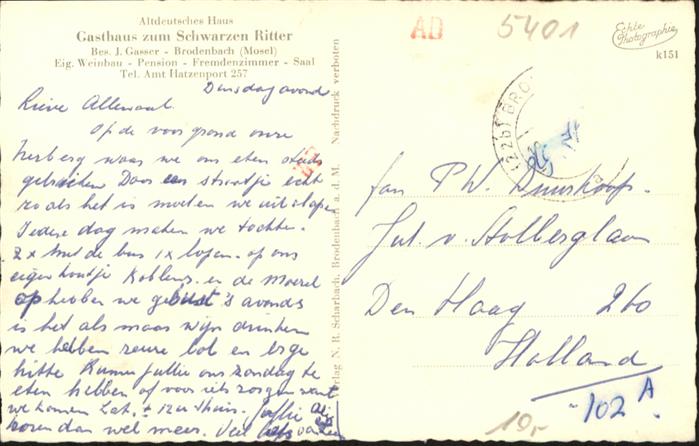 Altdeutsches Haus
Gasthaus zum Schwarzen Ritter
Bes. J. Gasser - Brodenbach (Mosel)
Eig. Weinbau - Pension - Fremdenzimmer - Saal
Tel. Amt Hatzenport 257
Dinsdagavond
Lieve Allemaal.
Op de voorgrond onze
herberg waar we ons eten steeds
gebruiken Door een straatje echt
zo als het is moeten we uit slapen
Iedere dag maken we tochten.
2 x met de bus 1 x lopen. op ons
eigen houtje Koblenz. en de Moezel
op hebben we 's avonds
is het als maar wijn drinken
we hebben reuze lol en erge
hitte Kunnen jullie ons zondag te
eten hebben of voor iets zorgen want
we komen Zat. ± 12 u thuis. Jullie
horen dan wel meer. Veel liefs
Verlag N. R. Scharbach, Brodenbach a. d. M. Nachdruck verboten
AD
5401
Echte Photographie
k151
(22b) BRO
fam P. W.
Jul. v. Stolberglaan
Den Haag 260
Holland
102 A
10,-